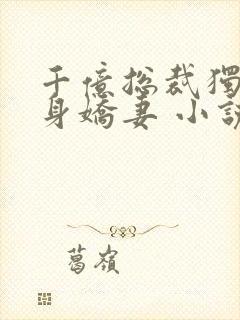 千億総裁獨
身嬌妻 小説
葛嶺